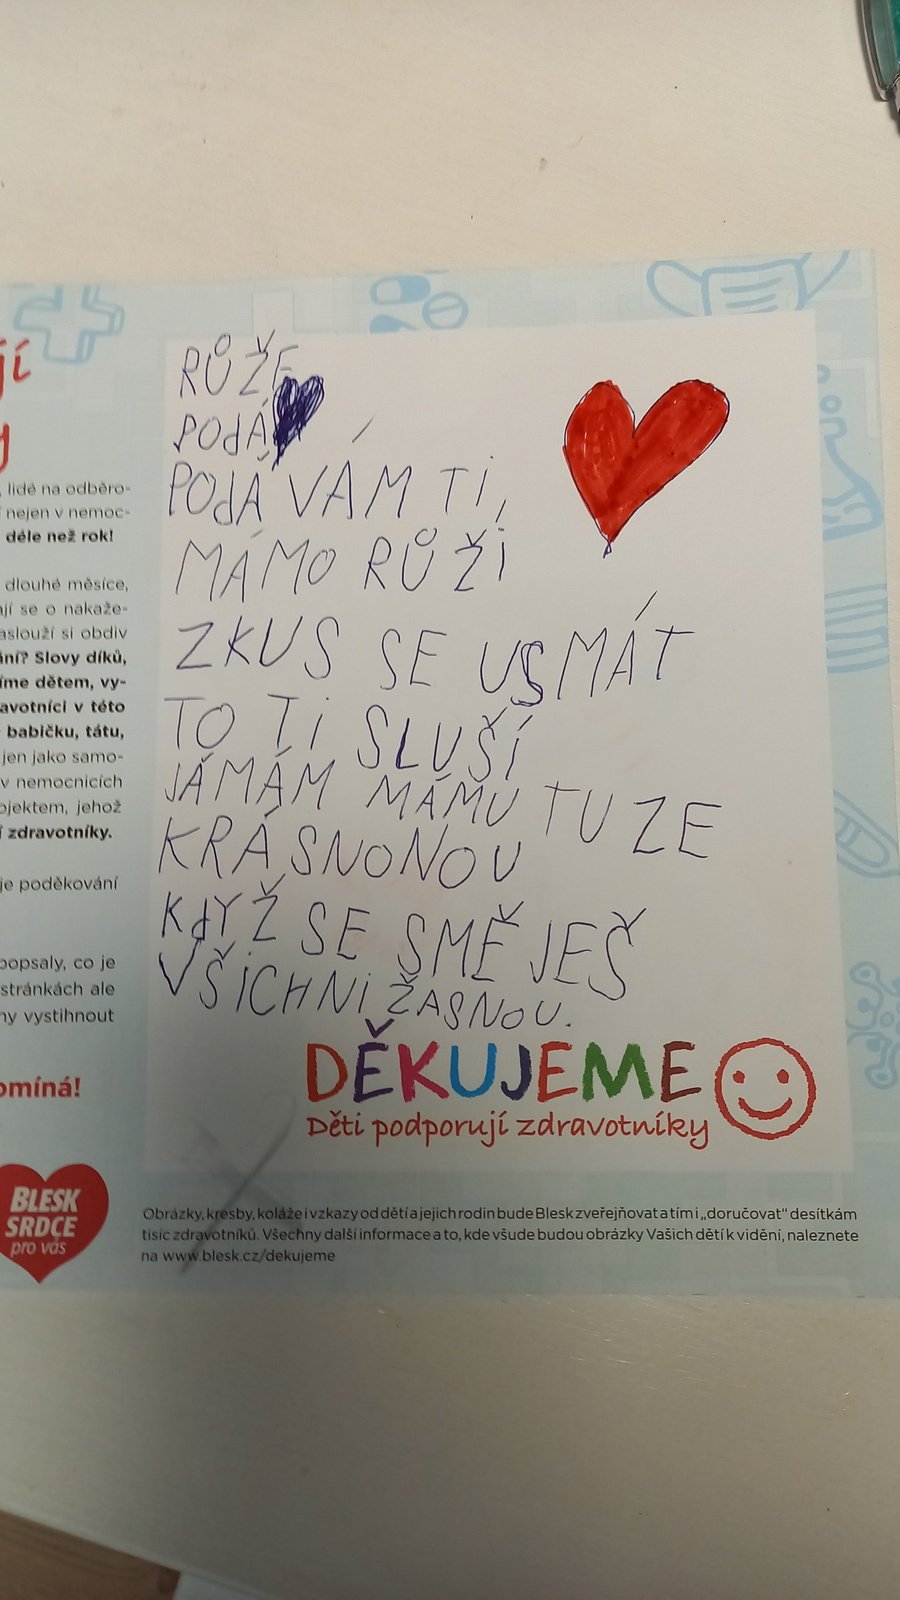 jí
y
, lidé na odběro-
í nejen v nemoc-
déle než rok!
dlouhé měsíce,
ají se o nakaže-
aslouží si obdiv
ání? Slovy díků,
íme dětem, vy-
avotníci v této
babičku, tátu,
jen jako samo-
v nemocnicích
ojektem, jehož
í zdravotníky.
je poděkování
popsaly, co je
stránkách ale
ny vystihnout
omíná!
BLESK
SRDCE
pro vás
RŮŽE
PODÁ
PODÁ VÁM TI,
MÁMO RŮŽI
ZKUS SE USMÁT
TO TI SLUŠÍ
JÁMÁM MÁMU TU ZE
KRÁSNONOU
KDYŽ SE SMĚJEŠ
VŠICHNI ŽASNOU.
DĚKUJEME
Děti podporují zdravotníky
Obrázky, kresby, koláže i vzkazy od dětí a jejich rodin bude Blesk zveřejňovat a tím i „doručovat“ desítkám
tisíc zdravotníků. Všechny další informace a to, kde všude budou obrázky Vašich dětí k vidění, naleznete
na www.blesk.cz/dekujeme